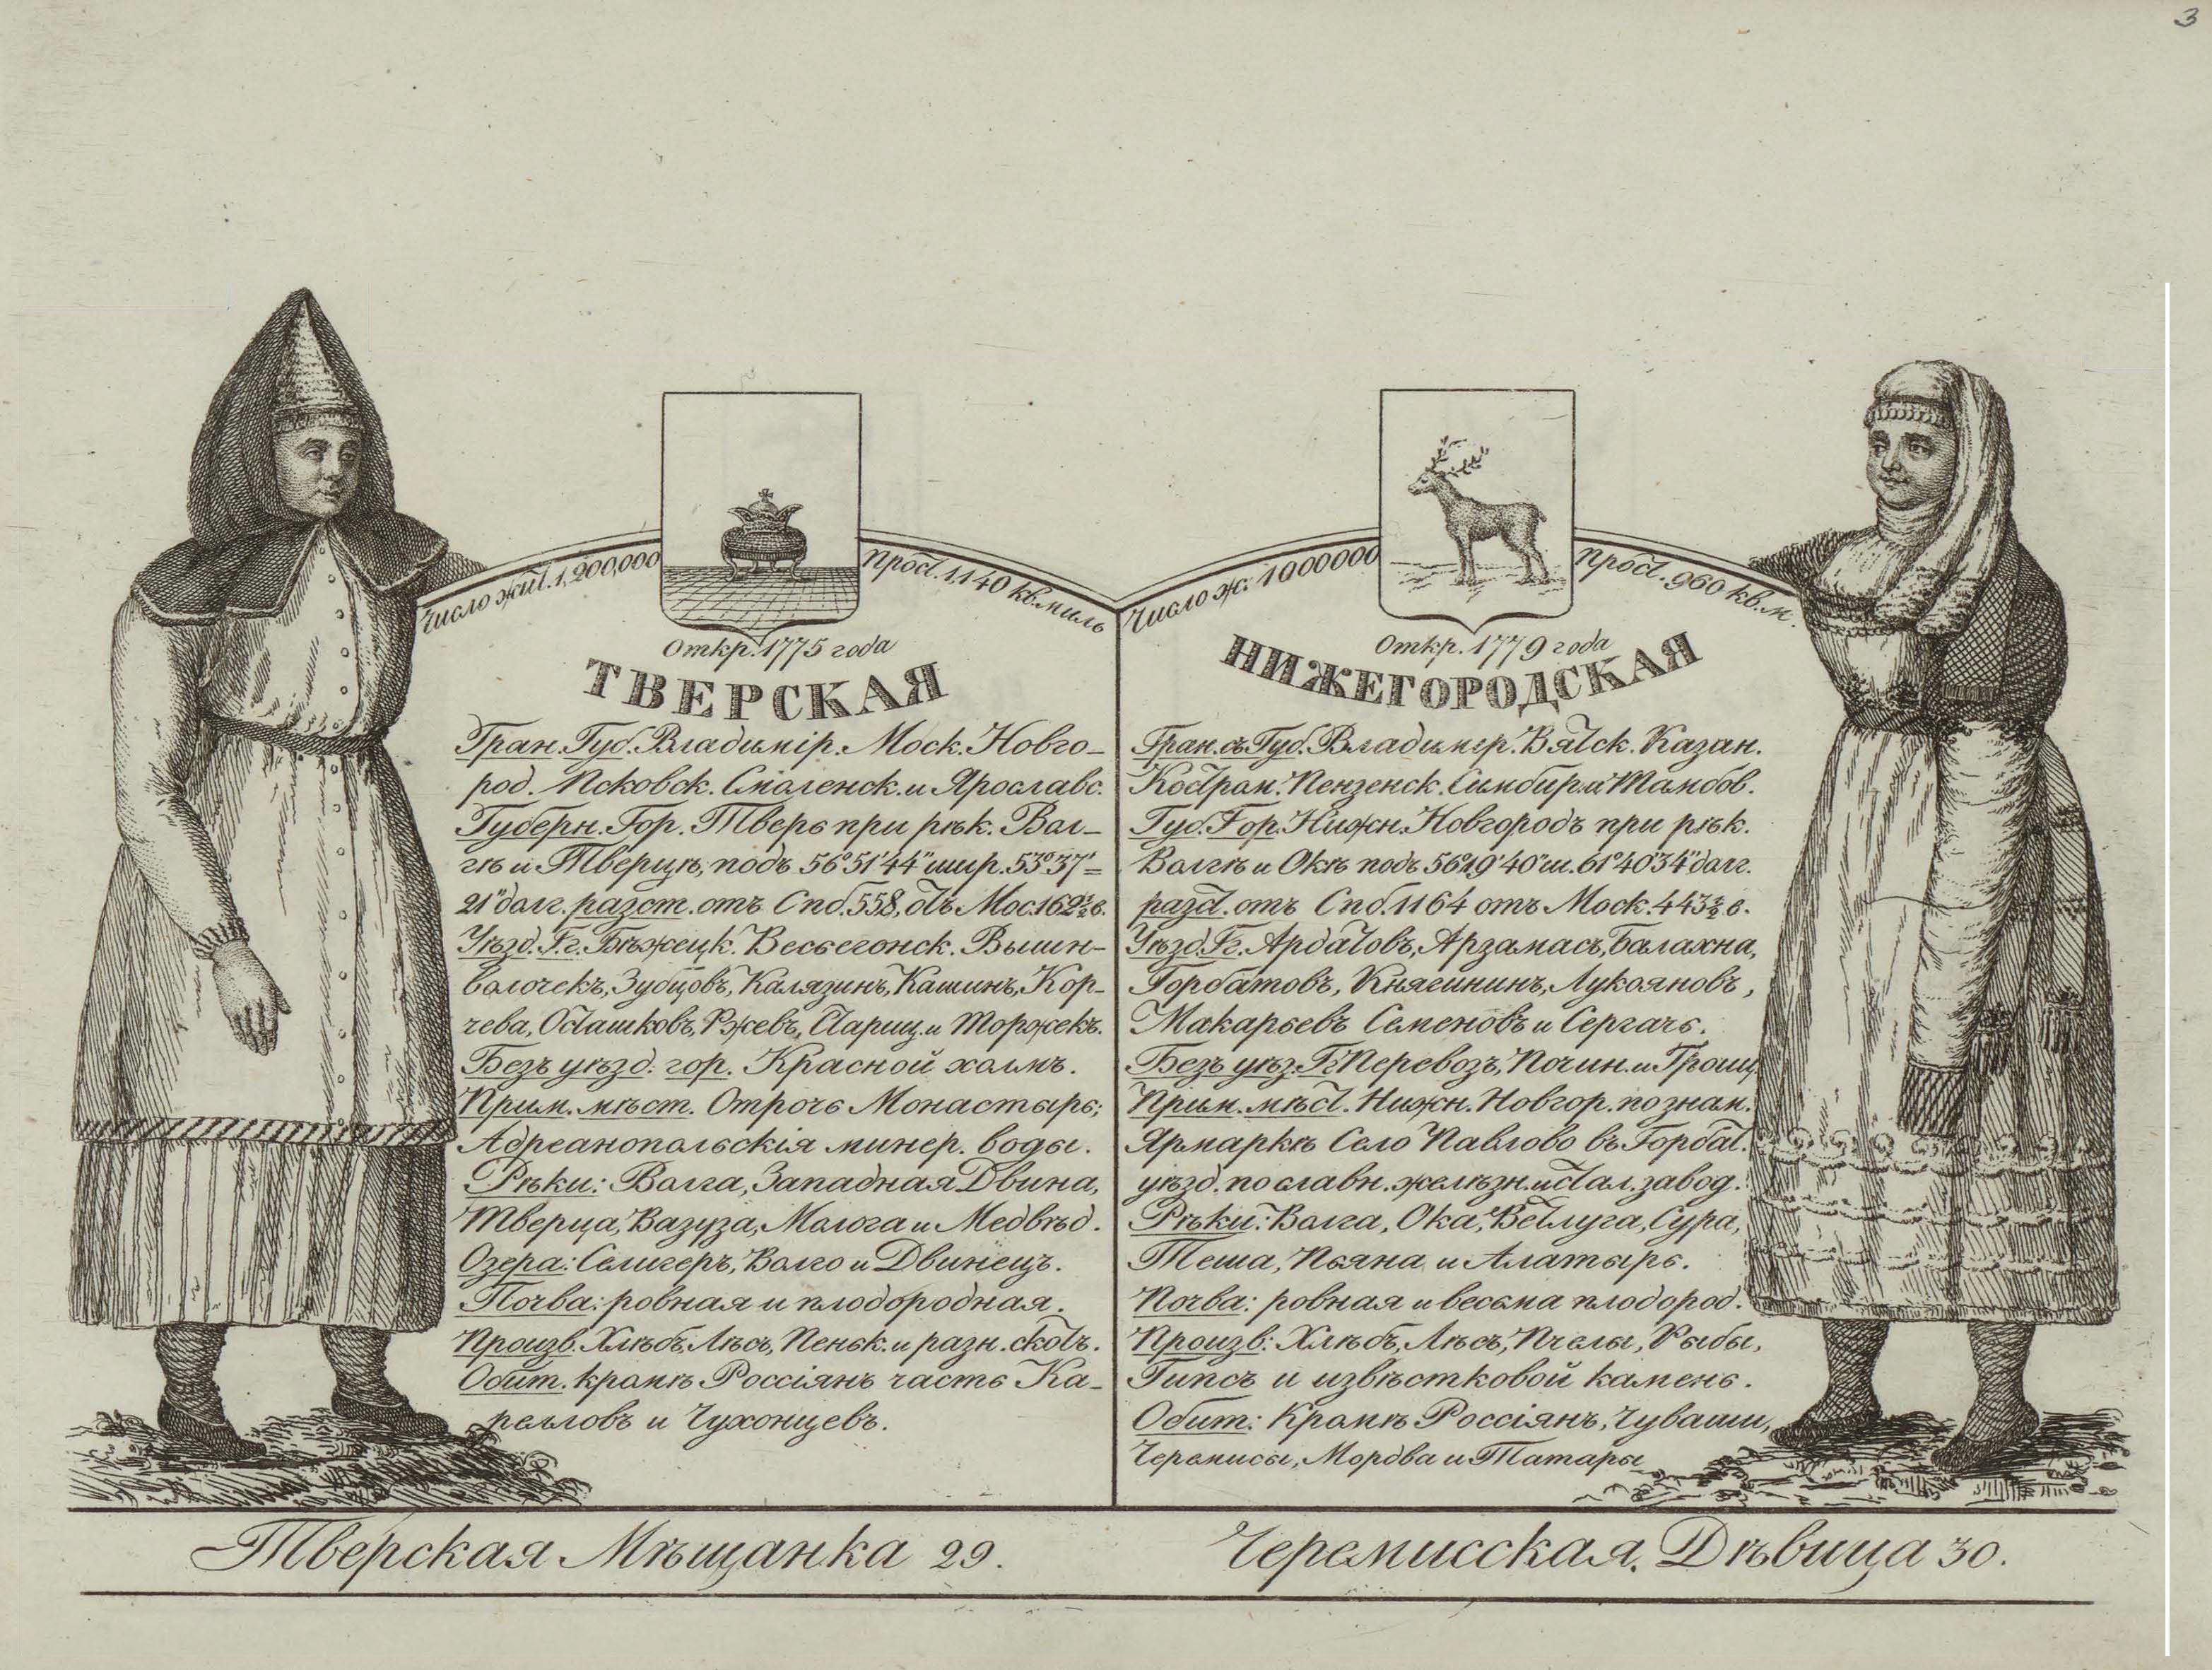 3
Число жит. 1,200,000
Прост. 1140 кв. миль
Откр. 1775 года
ТВЕРСКАЯ
Гран. Губ. Владимір. Моск. Новго-
род. Псковск. Смоленск. и Ярославс.
Губерн. Гор. Тверь при рѣк. Вол-
гѣ и Тверцѣ, подъ 56°51'44" шир. 53°37'=
21" долг. разст. отъ Спб. 558, отъ Мос. 162½ в.
Уѣзд. Гг. Бѣжецк. Весьегонск. Вышн-
волочекъ, Зубцовъ, Калязинъ, Кашинъ, Кор-
чева, Осташковъ, Ржевъ, Стариц. и Торжекъ.
Безъ уѣзд. гор. Красной холмъ.
Прим. мѣст. Отрочь Монастырь;
Адреанопольскія минер. воды.
Рѣки: Волга, Западная Двина,
Тверца, Вазуза, Молога и Медвѣд.
Озера: Селигеръ, Волго и Двинецъ.
Почва: ровная и плодородная.
Произв. Хлѣбъ, Лѣсъ, Пеньк. и разн. скотъ.
Обит. кромѣ Россіянъ часть Ка-
релловъ и Чухонцевъ.
Тверская Мѣщанка 29.
Число ж. 1000000
Прост. 960 кв. м.
Откр. 1779 года
НИЖЕГОРОДСКАЯ
Гран. съ Губ. Владимер. Вятск. Казан.
Костром. Пензенск. Симбир. и Тамбов.
Губ. Гор. Нижн. Новгородъ при рѣк.
Волгѣ и Окѣ подъ 56°19'40" ш. 61°40'34" долг.
разст. отъ Спб. 1164 отъ Моск. 443½ в.
Уѣзд. Гг. Ардатовъ, Арзамасъ, Балахна,
Горбатовъ, Княгининъ, Лукояновъ,
Макарьевъ Семеновъ и Сергачь.
Безъ уѣз. Гг. Перевозъ, Почин. и Троиц.
Прим. мѣст. Нижн. Новгор. по знам.
Ярмаркѣ Село Павлово въ Горбат.
уѣзд. по славн. желѣзн. и стал. завод.
Рѣки: Волга, Ока, Ветлуга, Сура,
Теша, Пьяна и Алатырь.
Почва: ровная и весьма плодород.
Произв: Хлѣбъ, Лѣсъ, Пчелы, Рыбы,
Гипсъ и известковой камень.
Обит: Кромѣ Россіянъ, Чуваши,
Черемисы, Мордва и Татары
Черемисская Дѣвица 30.